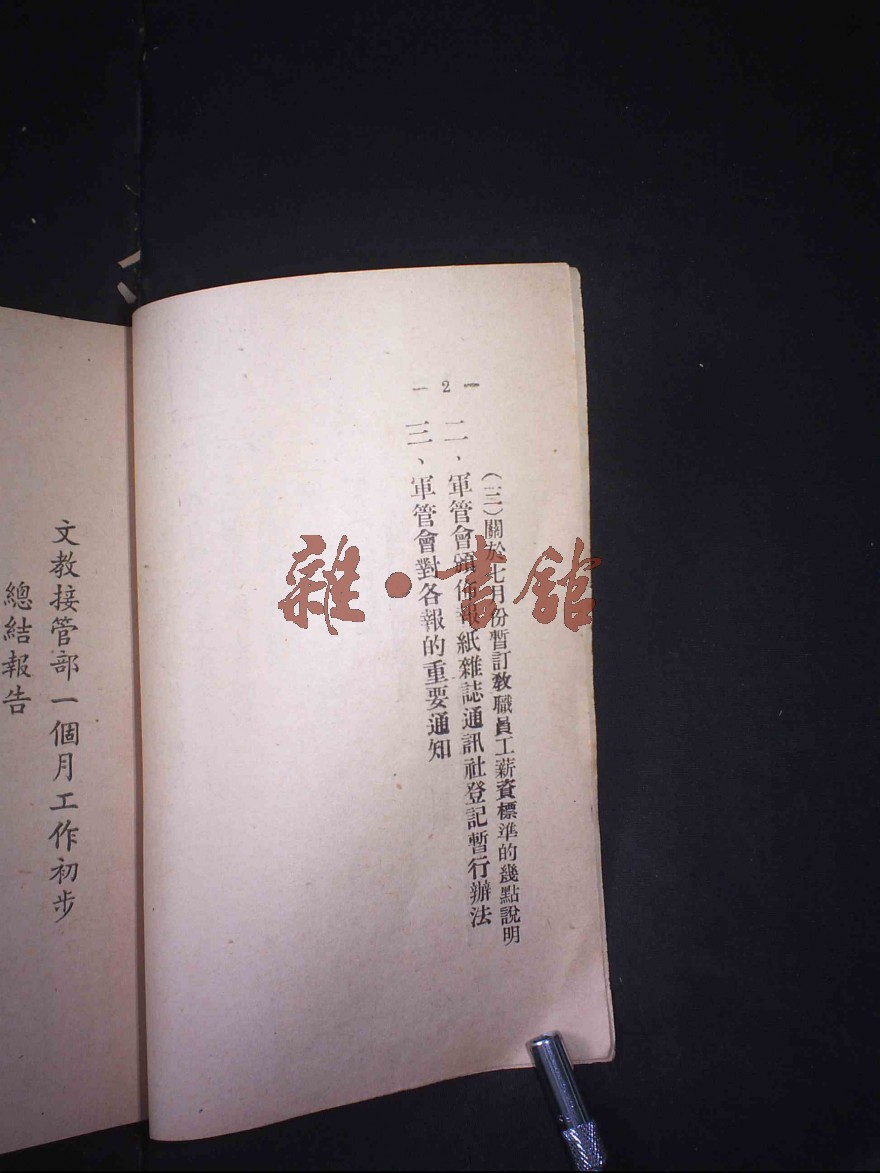 — 2 —
(三)關於七月份暫訂教職員工薪資標準的幾點說明
二、軍管會頒佈報紙雜誌通訊社登記暫行辦法
三、軍管會對各報的重要通知
文教接管部一個月工作初步
總結報告
雜·書館